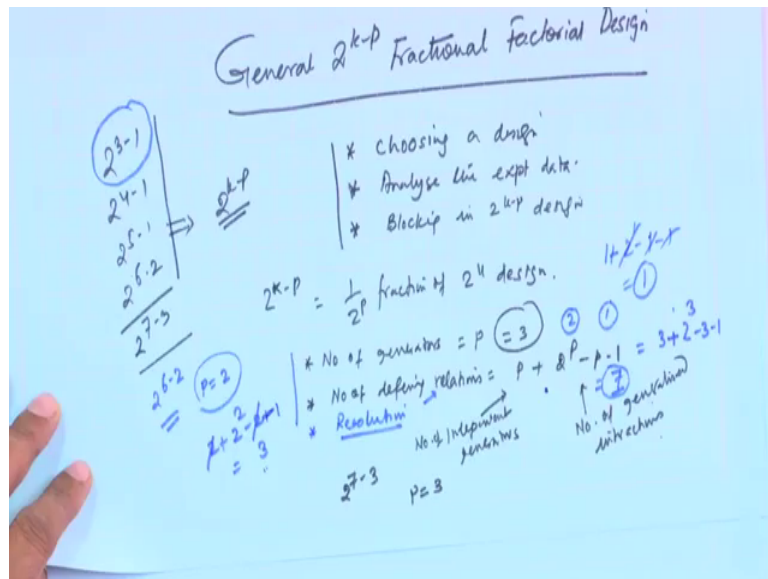 General 2^k-p Fractional Factorial Design
2^3-1
2^4-1
2^5-1
2^6-2
2^7-3
⇒ 2^k-p
* Choosing a design
* Analyse the expt data.
* Blocking in 2^k-p design
2^k-p = 1/2^p fraction of 2^k design.
1+2-1-1
= 1
* No of generators = p = 3 2 1
* No of defining relations = p + 2^p - p - 1 = 3+2^3-3-1
= 7
* Resolution
No. of Independent generators
No. of generalized interactions
2^6-2 p=2
2+2^2-2-1
= 3
2^7-3 p=3